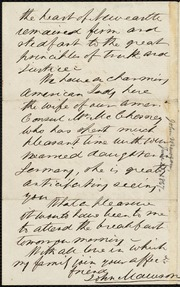 the heart of Newcastle
remained firm and
stedfast to the great
principles of truth and
justice.
We have a charming
American lady here
the wife of our amer.
Consul
who has spent much
pleasant time with our
married daughter in
Germany, she is great
anticipating seeing
you
What a pleasure
it would have been to me
to attend the breakfast
tomorrow morning—
With all love in which
my family join your affec.
friend
John Mawson